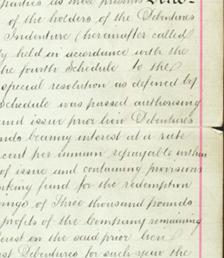 parties as more presents
of the holders of the Debentures
Indenture (hereinafter called
ly held in accordance with the
the fourth Schedule to the
special resolution as defined by
Schedule was passed authorising
and issue prior lien Debentures
bearing interest at a rate
cent per annum repayable within
of issue and containing provisions
king fund for the redemption
ings of Three thousand pounds
profits of the Company remaining
rest on the said prior lien
st Debentures for such year the